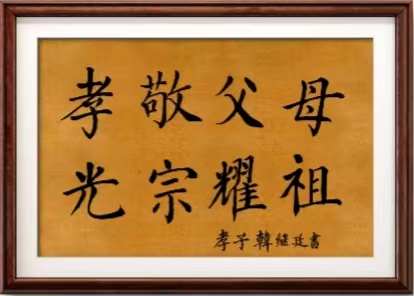 孝敬父母
光宗耀祖
孝子韓继廷書